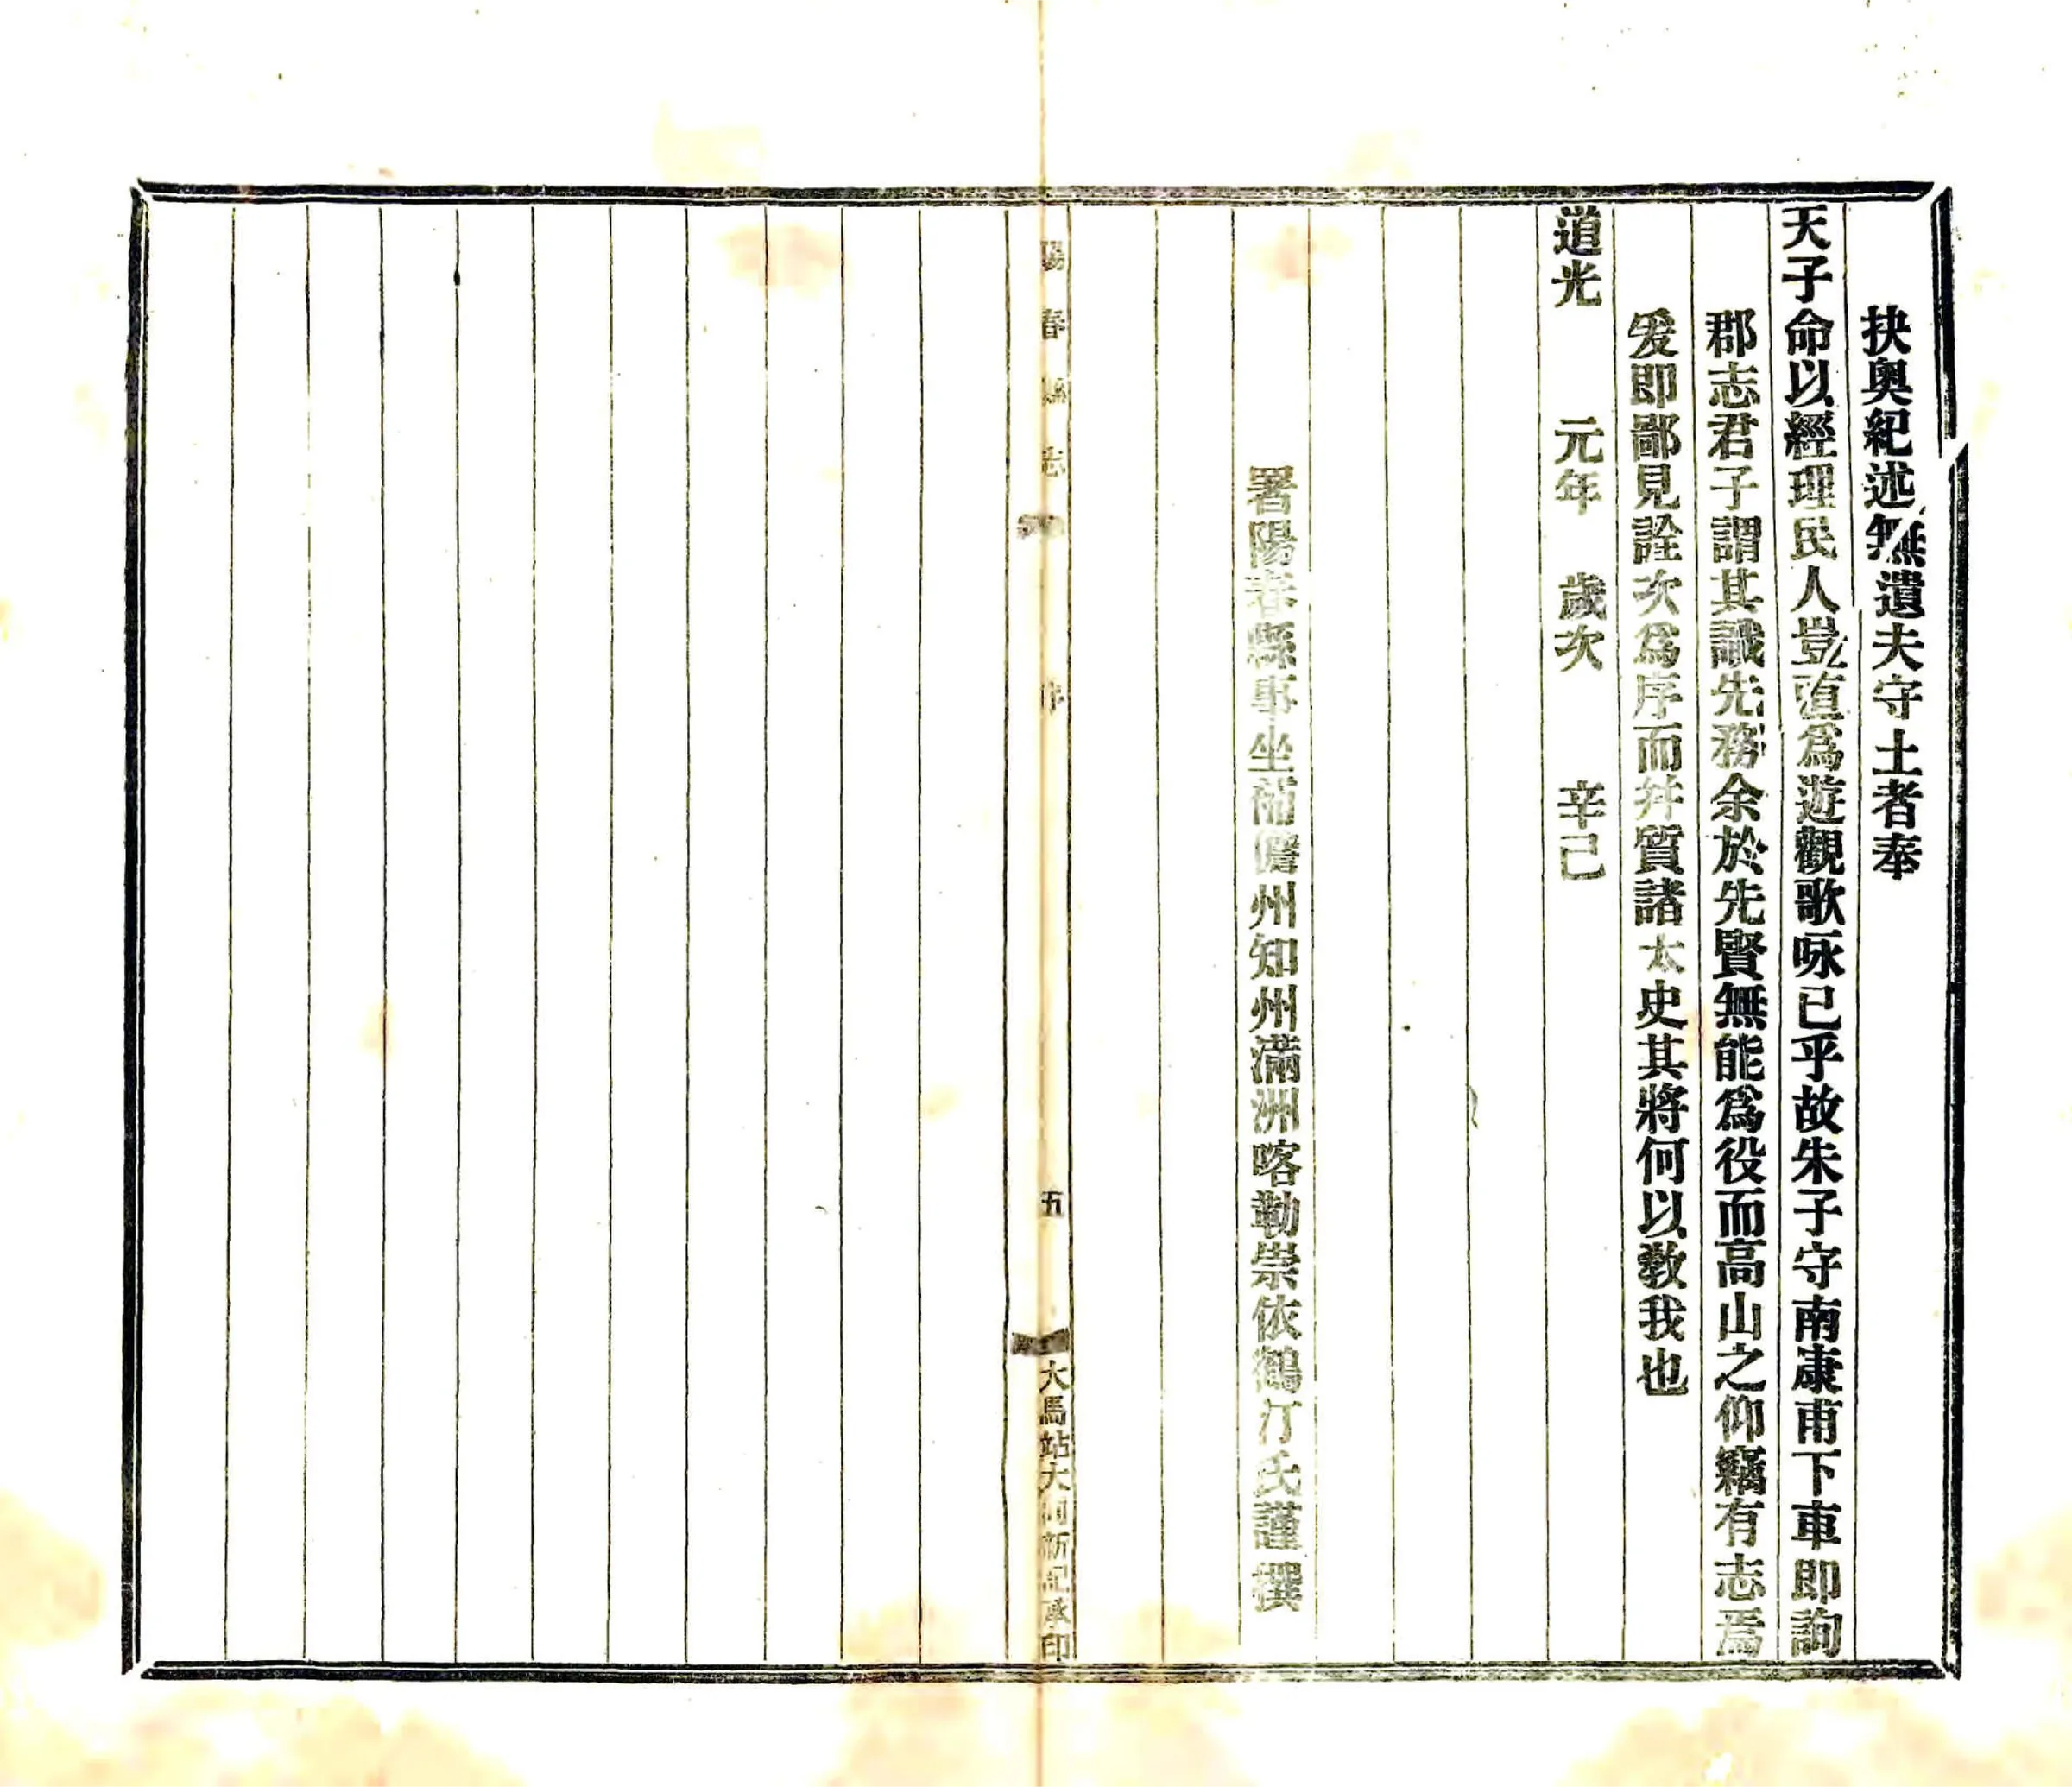 抉奧紀述無遺夫守土者奉
天子命以經理民人豈直爲遊觀歌咏已乎故朱子守南康甫下車即詢
郡志君子謂其識先務余於先賢無能爲役而高山之仰竊有志焉
爰即鄙見詮次爲序而并質諸太史其將何以教我也
道光 元年 歲次 辛已
署陽春縣事坐補儋州知州滿洲喀勒崇依鶴汀氏謹撰
陽春縣志 序 五 大馬站大同新記承印